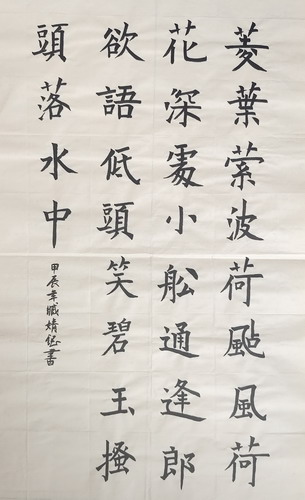 菱葉萦波荷颭風荷
花深處小船通逢郎
欲語低頭笑碧玉搔
頭落水中
甲辰 臧婧 書